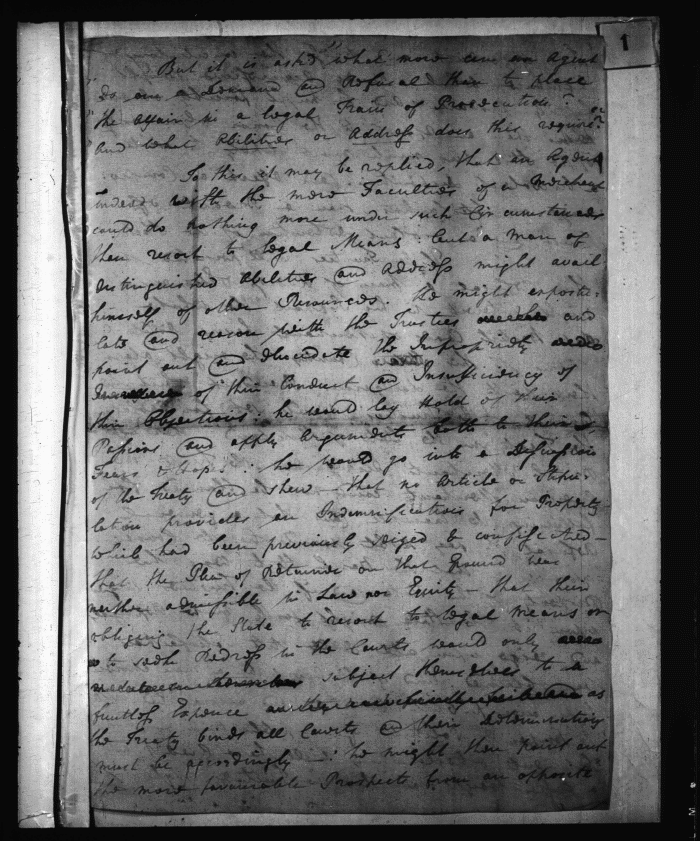 1
But it is ask'd "what more can an Agent
do on a Demand and Refusal than to place
the Affair in a legal Train of Prosecution? or
and what Abilities or Address does this require?"
To this it may be replied, that an Agent
indeed with the mere Faculties of a Merchant
could do nothing more under such Circumstances
than resort to legal Means: but a man of
distinguished Abilities and Address might avail
himself of other Resources. He might expostu:
late and reason with the Trustees and
point out and elucidate the Impropriety
of their Conduct and Insufficiency of
their Objections: he would lay Hold of their
Passions and apply Arguments both to their
Fears & Hopes: he would go into a Discussion
of the Treaty and shew that no Article or Stipu:
lation provides an Indemnification for Property
which had been previously seized & confiscated —
that the Plea of Retainer on that Ground was
neither admissible in Law nor Equity — that their
obliging the State to resort to legal means or
to seek Redress in the Courts would only
subject themselves to a
fruitless Expence as
the Treaty binds all Courts & their Determinations
must be accordingly —: he might then point out
the more favourable Prospects from an opposite